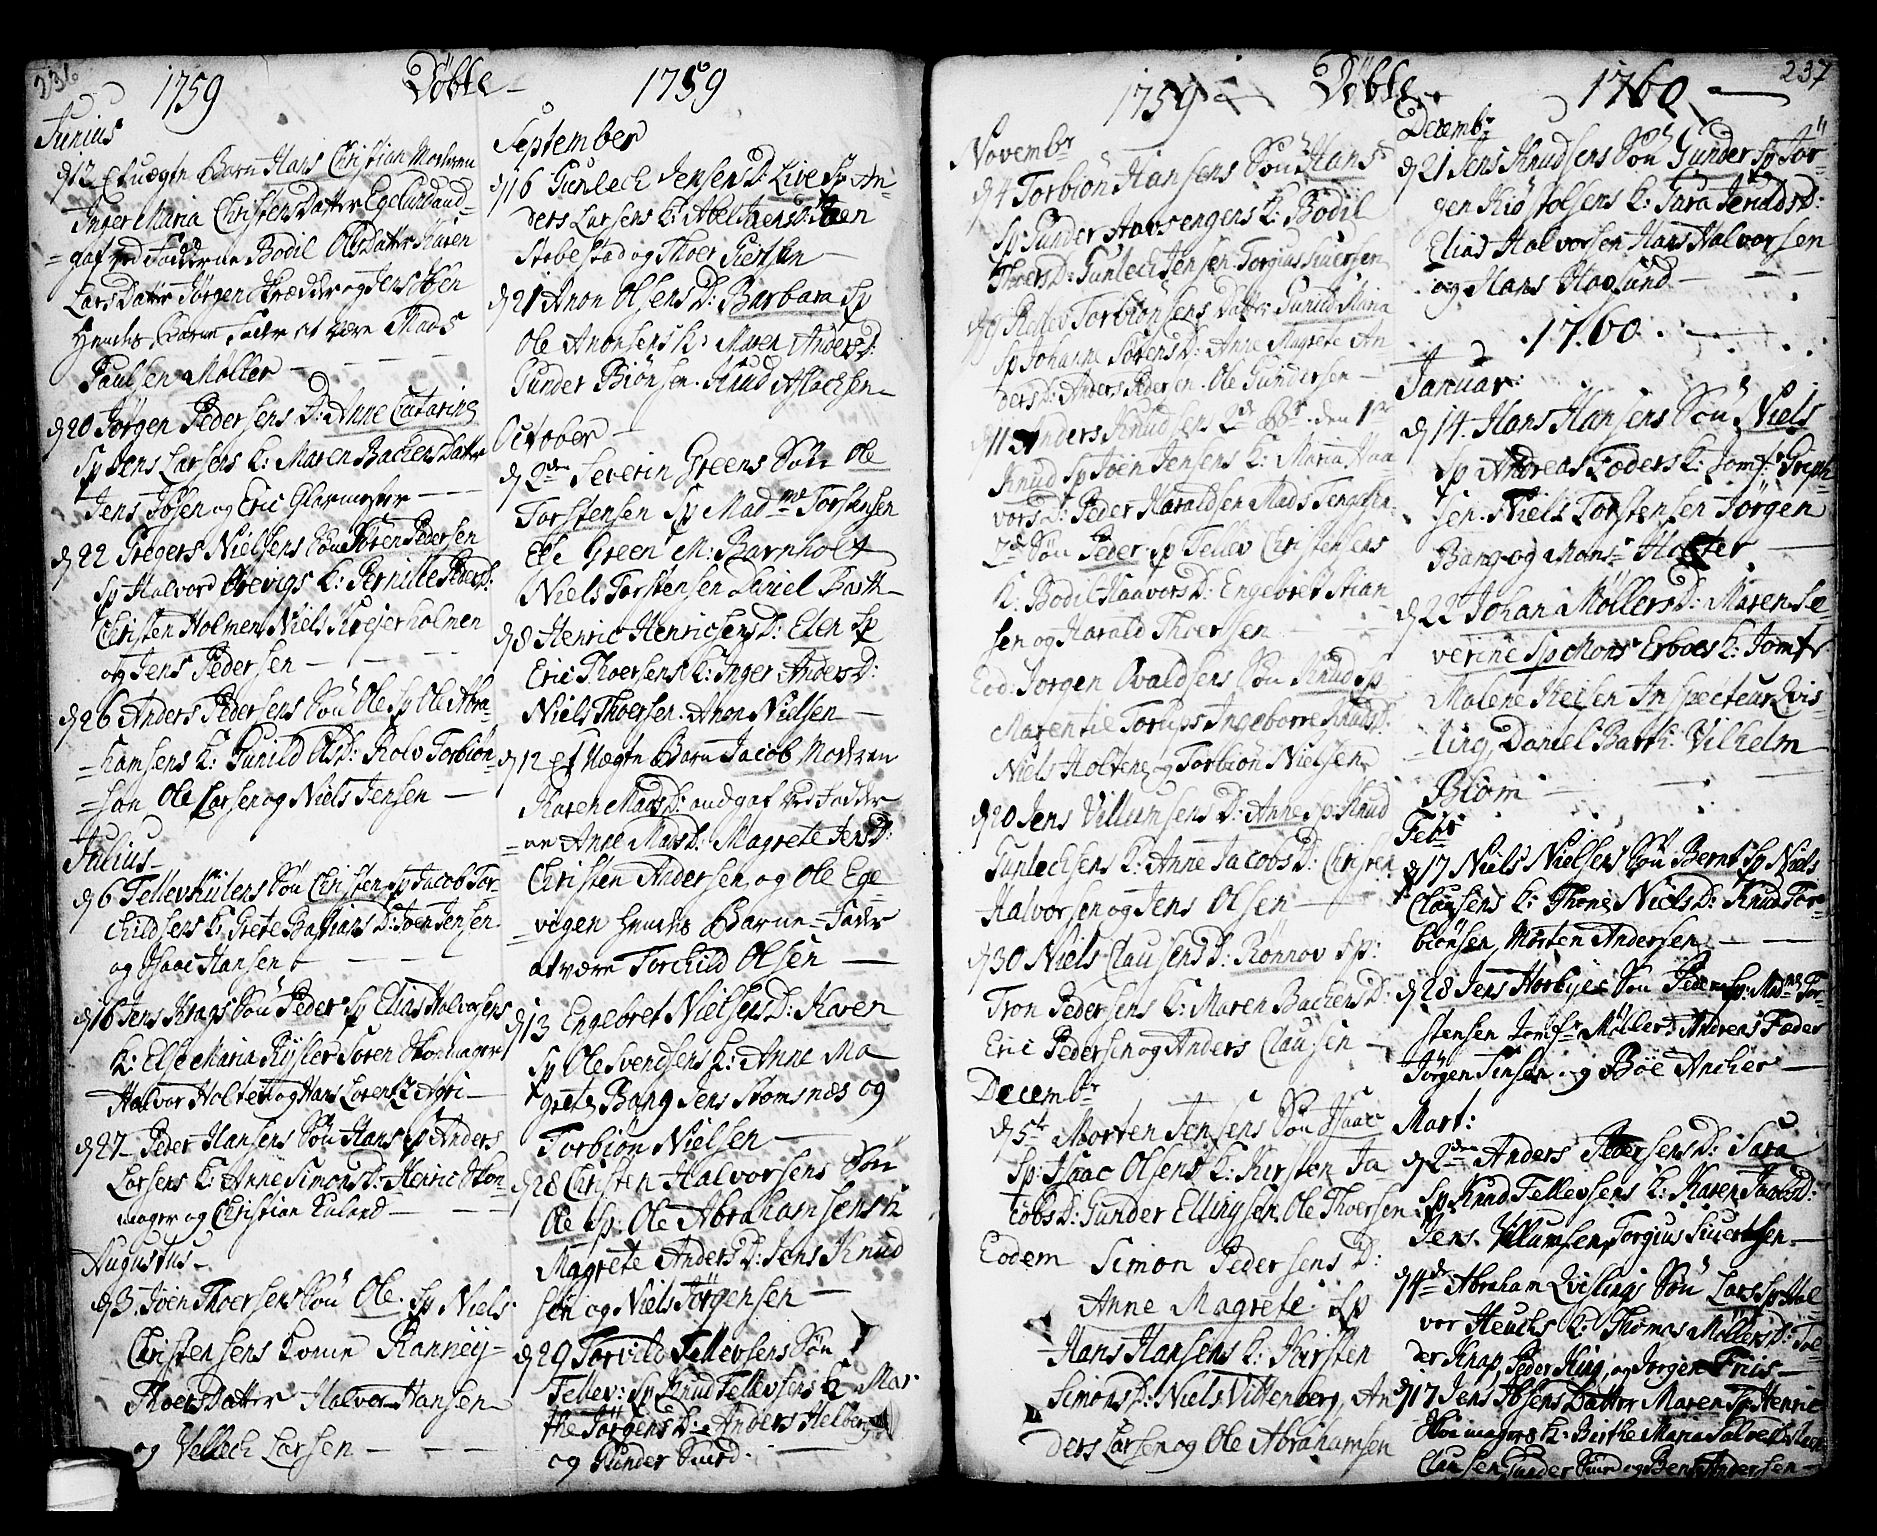 236.
1759 Döbte
Junius
d 12 Et uægte Barn Hans Christian Moderen
Inger Maria Christens Datter Egelund aud-
-gaf ved Fadderne Bodil Olsdatter Karen
Lars Datter Jörgen Skrædder og Jens Ibsen
Hendes Barne Fader at være Mads
Paulsen Møller -
d 20 Jørgen Pedersens D: Anne Catarina
Sp Jens Larsens K: Maren Backens Datter
Jens Ibsen og Eric Glarmester
d 22 Gregers Nielsens Sön Sören Pedersen
Sp Halvord Grevigs K: Pernille Peders D:
Christen Holmen Niels Kreserholmen
og Jens Pedersen -
d 26 Anders Pedersens Sön Ole Sp Ole Abra-
-hamsens K: Gunild Ols D: Rolv Torbiön-
-sen Ole Larsen og Niels Jensen -
Julius -
d 6 Tellev Sens Sön Christen Sp Jacob Tor-
childsens K: Grete Bastians D: Joen Jensen
og Isaac Hansen -
d 16 Jens Krags Sön Peder Sp Elias Halvorsens
K: Else Maria Kysler Sören Skomager
Halvor Holten og Hans Lorentz
d 27 - Peder Hansens Sön Hans Sp Anders
Larsens K: Anne Simons D: Henric Skon-
mager og Christian Kaland -
Augustus -
d 3. Joen Thoersens Sön Ole. Sp Niels
Christensens Kone Rannei
Thoers Datter Halvor Hansen
og Vellech Larsen -
1759
September
d 16 Gunlech Jensens D: Live Sp An-
ders Larsens K: Abel Jens D: Steen
Stabestad og Thoer Giertsen -
d 21 Anon Olsens D: Barbara Sp
Ole Anonsens K: Maren Anders D:
Gunder Biönsen. Knud Aslachsen -
October -
d 2den Severin Greens Sön Ole
Torstensen Sp Madme Torstensen
Elle Green M: Barnholt
Niels Torstensen Daniel Barth -
d 8 Henric Henricsens D: Elen Sp
Eric Thoersens K: Inger Anders D:
Niels Thoersen. Anon Nielsen -
d 12 et Uægte Barn Jacob Moderen
Karen Mads D: audgaf ved Fadder
-ne Anne Mads D: Magrete Jens D:
Christen Andersen og Ole Ege-
-vigen Hendes Barne=Fader
at være Torchild Olsen -
d 13 Engebret Nielsens D: Karen
Sp Ole Svendsens K: Anne Ma-
grete Bang Jens Stomsnæs og
Torbiön Nielsen -
d 28 Christen Halvorsens Sön
Ole Sp: Ole Abrahamsens K
Magrete Anders D: Jens Knud
sen og Niels Jörgensen -
d 29 Torvild Tellevsens Sön
Tellev: Sp Knud Tellefsens K Mar
the Jörgens D: Anders Helb
og Gunder Suurd.
1759 Döbte
Novembr
d 4 Torbiön Hansens Sön Hans
Sp: Gunder Aarsengens K: Bodil
Thoers D: Gunlech Jensen Torgius Siuersen
d 9 Tellev Torbiönsens Datter Gunild Maria
Sp Johanne Sörens D: Anne Magrete An
ders D: Anders Pedersen. Ole Gundersen -
d 11 Anders Knudsens 2de Börn. den 1te
Knud Sp Joen Jensens K: Maria Haa
vors D: Peder Haraldsen Mads Tengelsen.
2d Sön Peder Sp Tellev Christensens
K: Bodil Haavors D: Engebret Stian
sen og Harald Thoersen
Eod: Jorgen Ovaldsens Sön Knud Sp
Maren til Torups Ingeborre Knuds D.
Niels Holten og Torbiön Nielsen
d 20 Jens Villumsens D: Anne Sp: Knud
Gunlechsens K: Anne Jacobs D: Christen
Halvorsen og Jens Olsen -
d 30 Niels Clausens D: Rönnov Sp:
Tron Pedersens K: Maren Backens D:
Eric Pedersen og Anders Clausen -
Decembr
d 5te Morten Jensens Sön Isaac
Sp: Isaac Olsens K: Kirsten Ja
cobs D: Gunder Ellingsen Ole Thoersen
Eodem Simon Pedersens D:
Anne Magrete Sp
Hans Hansens K: Kirsten
Simons D: Niels Vittenberg An
ders Larsen og Ole Abrahamsen
237
1760 -
Decembr
d 21 Jens Knudsens Sön Gunder Sp Jör-
gen Kiöstolsens K: Sara Jeruds D:
Elias Halvorsen Hans Halvorsen
og Hans Haslund -
1760.
Januar:
d 14. Hans Hansens Sön Niels
Sp Andreas Fæders K: Jomfr Griph
sen. Niels Torstensen Jörgen
Bang og Mons: Holter -
d 22 Johan Möllers D: Maren Se-
verine Sp Mons Erboes K: Jomfr
Malene Heisen Inspecteur Qvis-
ling Daniel Barth: Vilhelm
Blom -
Febr
d 17 Niels Nielsens Sön Bernt Sp Niels
Clausens K: Thone Niels D: Knud Tor-
biönsen Morten Andersen -
d 28 Jens Horbyes Sön Peder Sp: Madme Tor-
stensen Jomfr Möller Andreas Fæder
Jörgen Jensen og Böe Ancher -
Mart:
d 2den Anders Pedersens D: Sara
Sp Knud Tellevsens K: Karen Jacobs D:
Jens Villumsen Torgius Siuertsen. -
d 4de Abraham Qvislings Sön Lars Sp Hal
vor Heuchs K: Thomas Möllers D: Tol-
der Knap Peder King og Jörgen Friis -
d 17 Jens Ibsens Datter Maren Sp Henric
Skomagers K: Birthe Maria Salves D:
Clausen Gunder Suur og Bent Andersen -